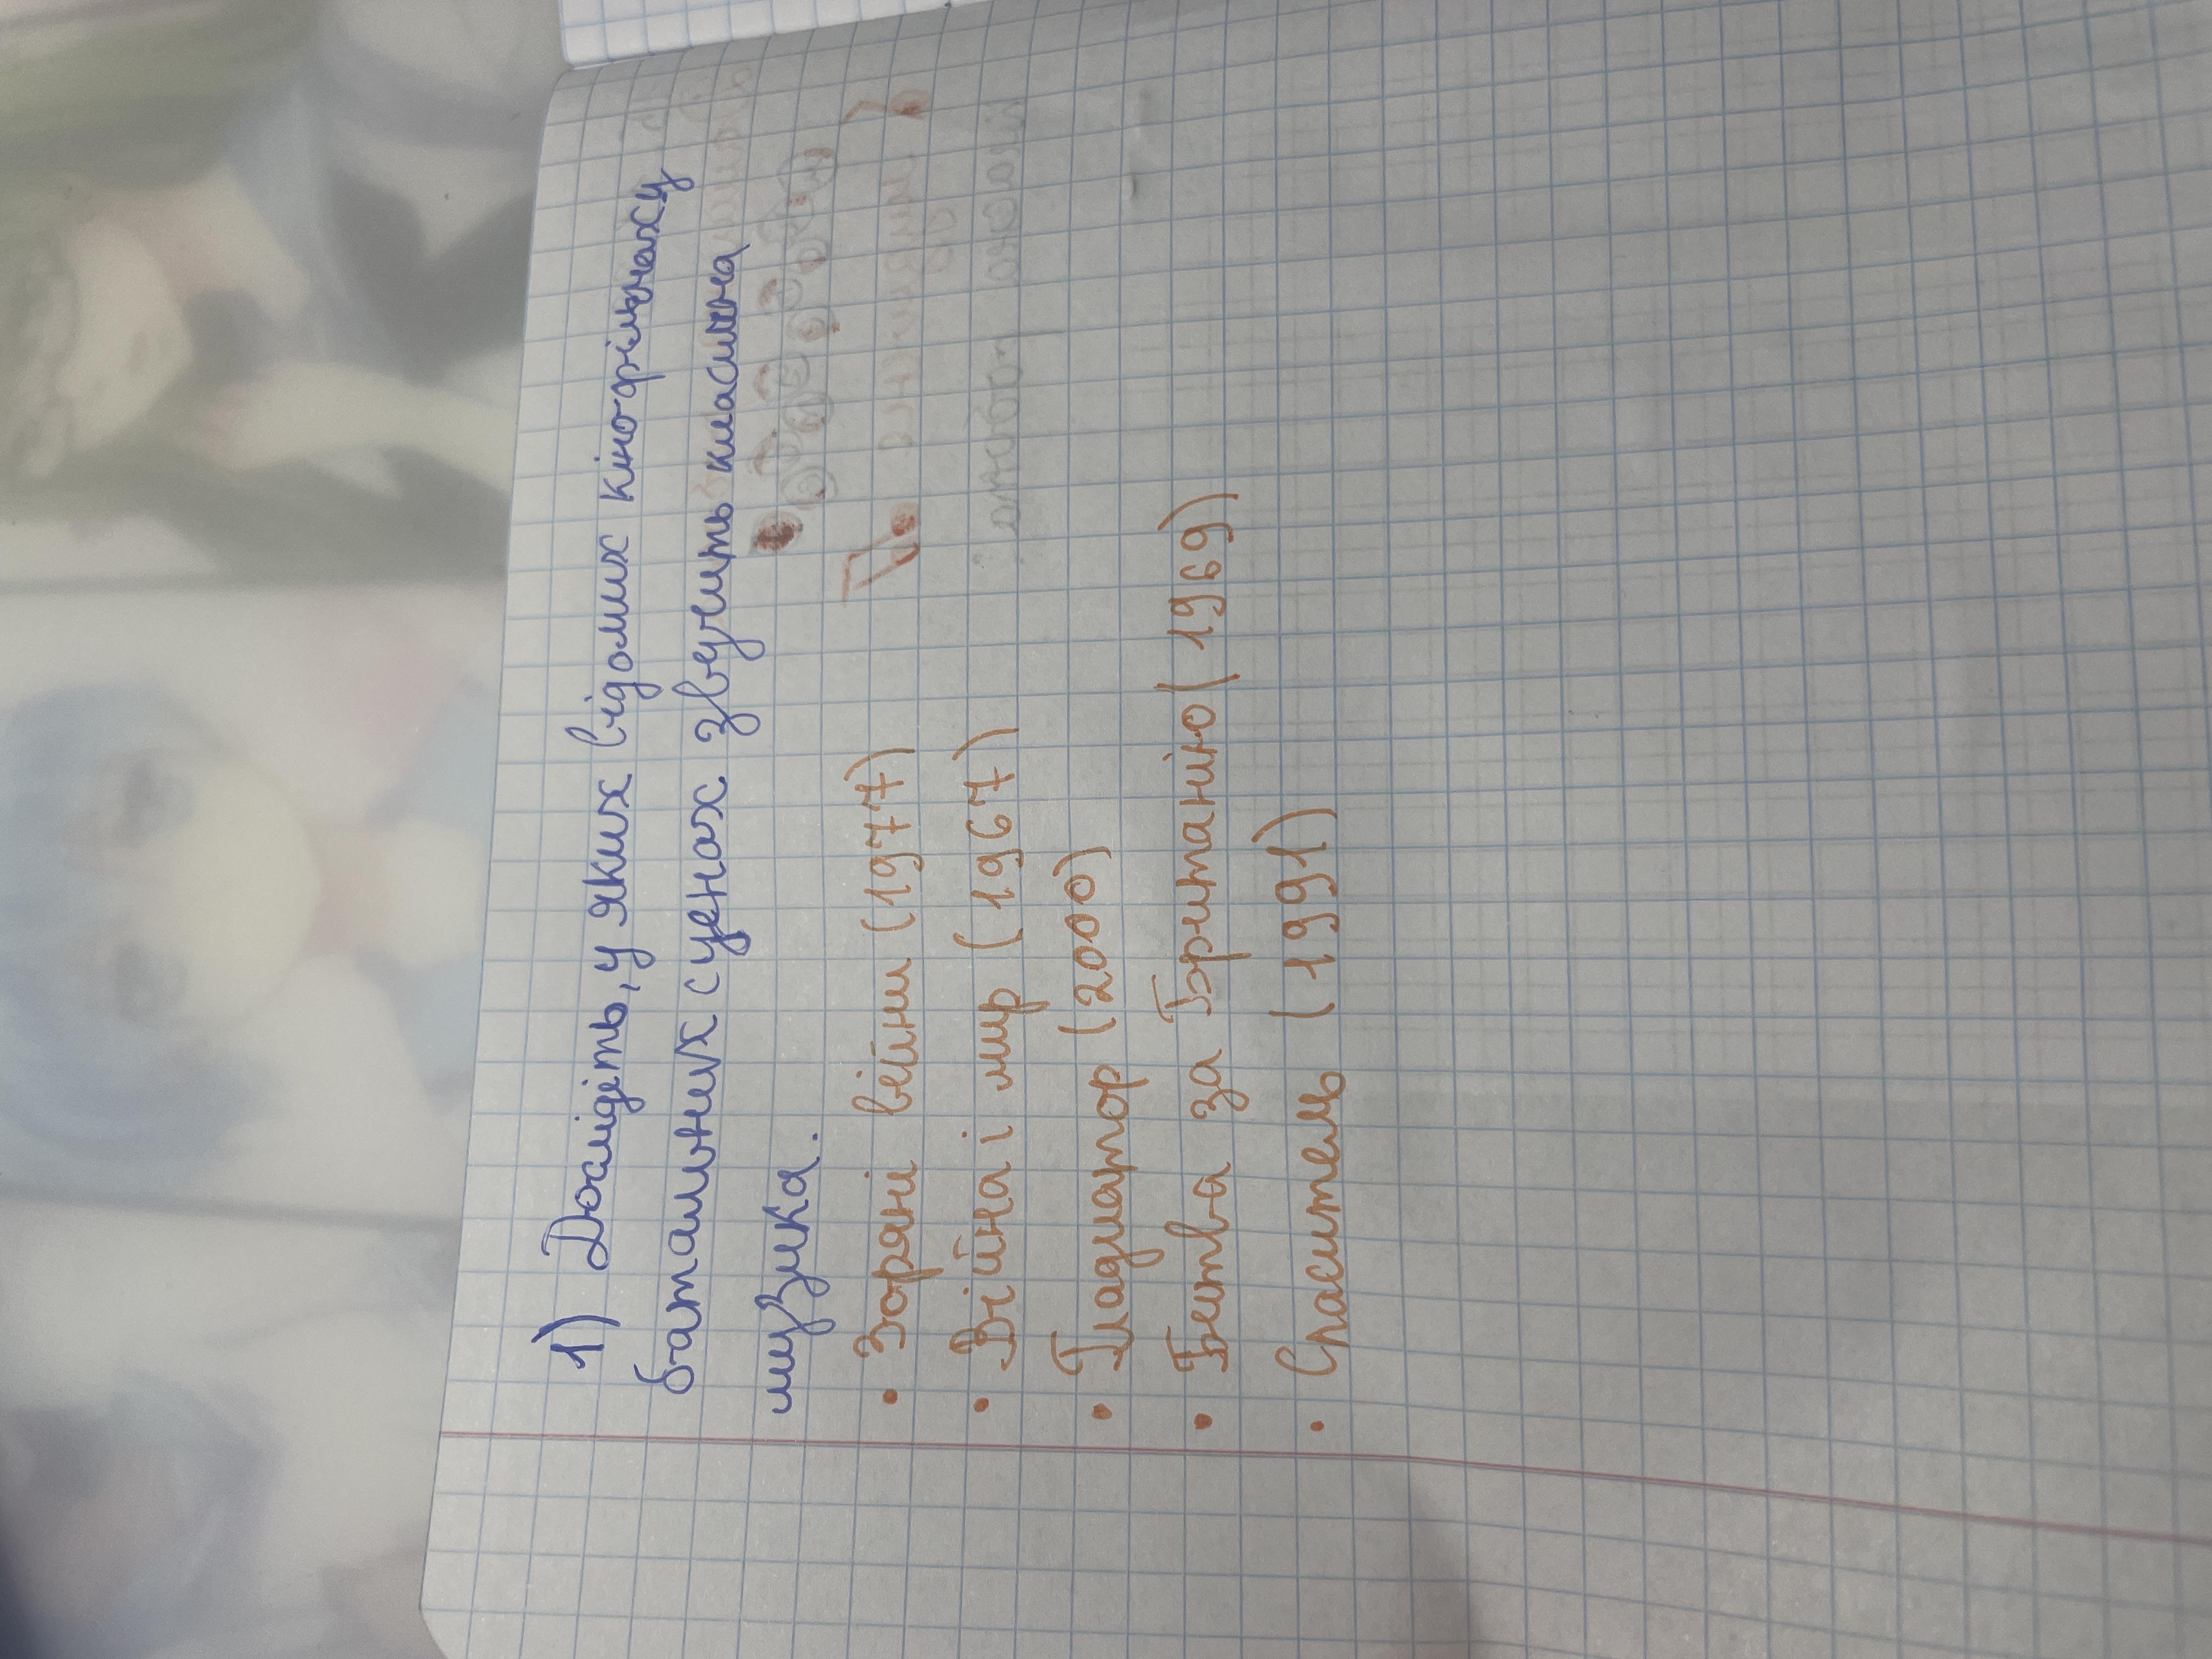 1) Дослідіть, у яких відомих кінофільмах у
батальних сценах звучить класична
музика.
• Зоряні війни (1977)
• Війна і мир (1967)
• Гладиатор (2000)
• Битва за Британію (1969)
• Спаситель (1991)